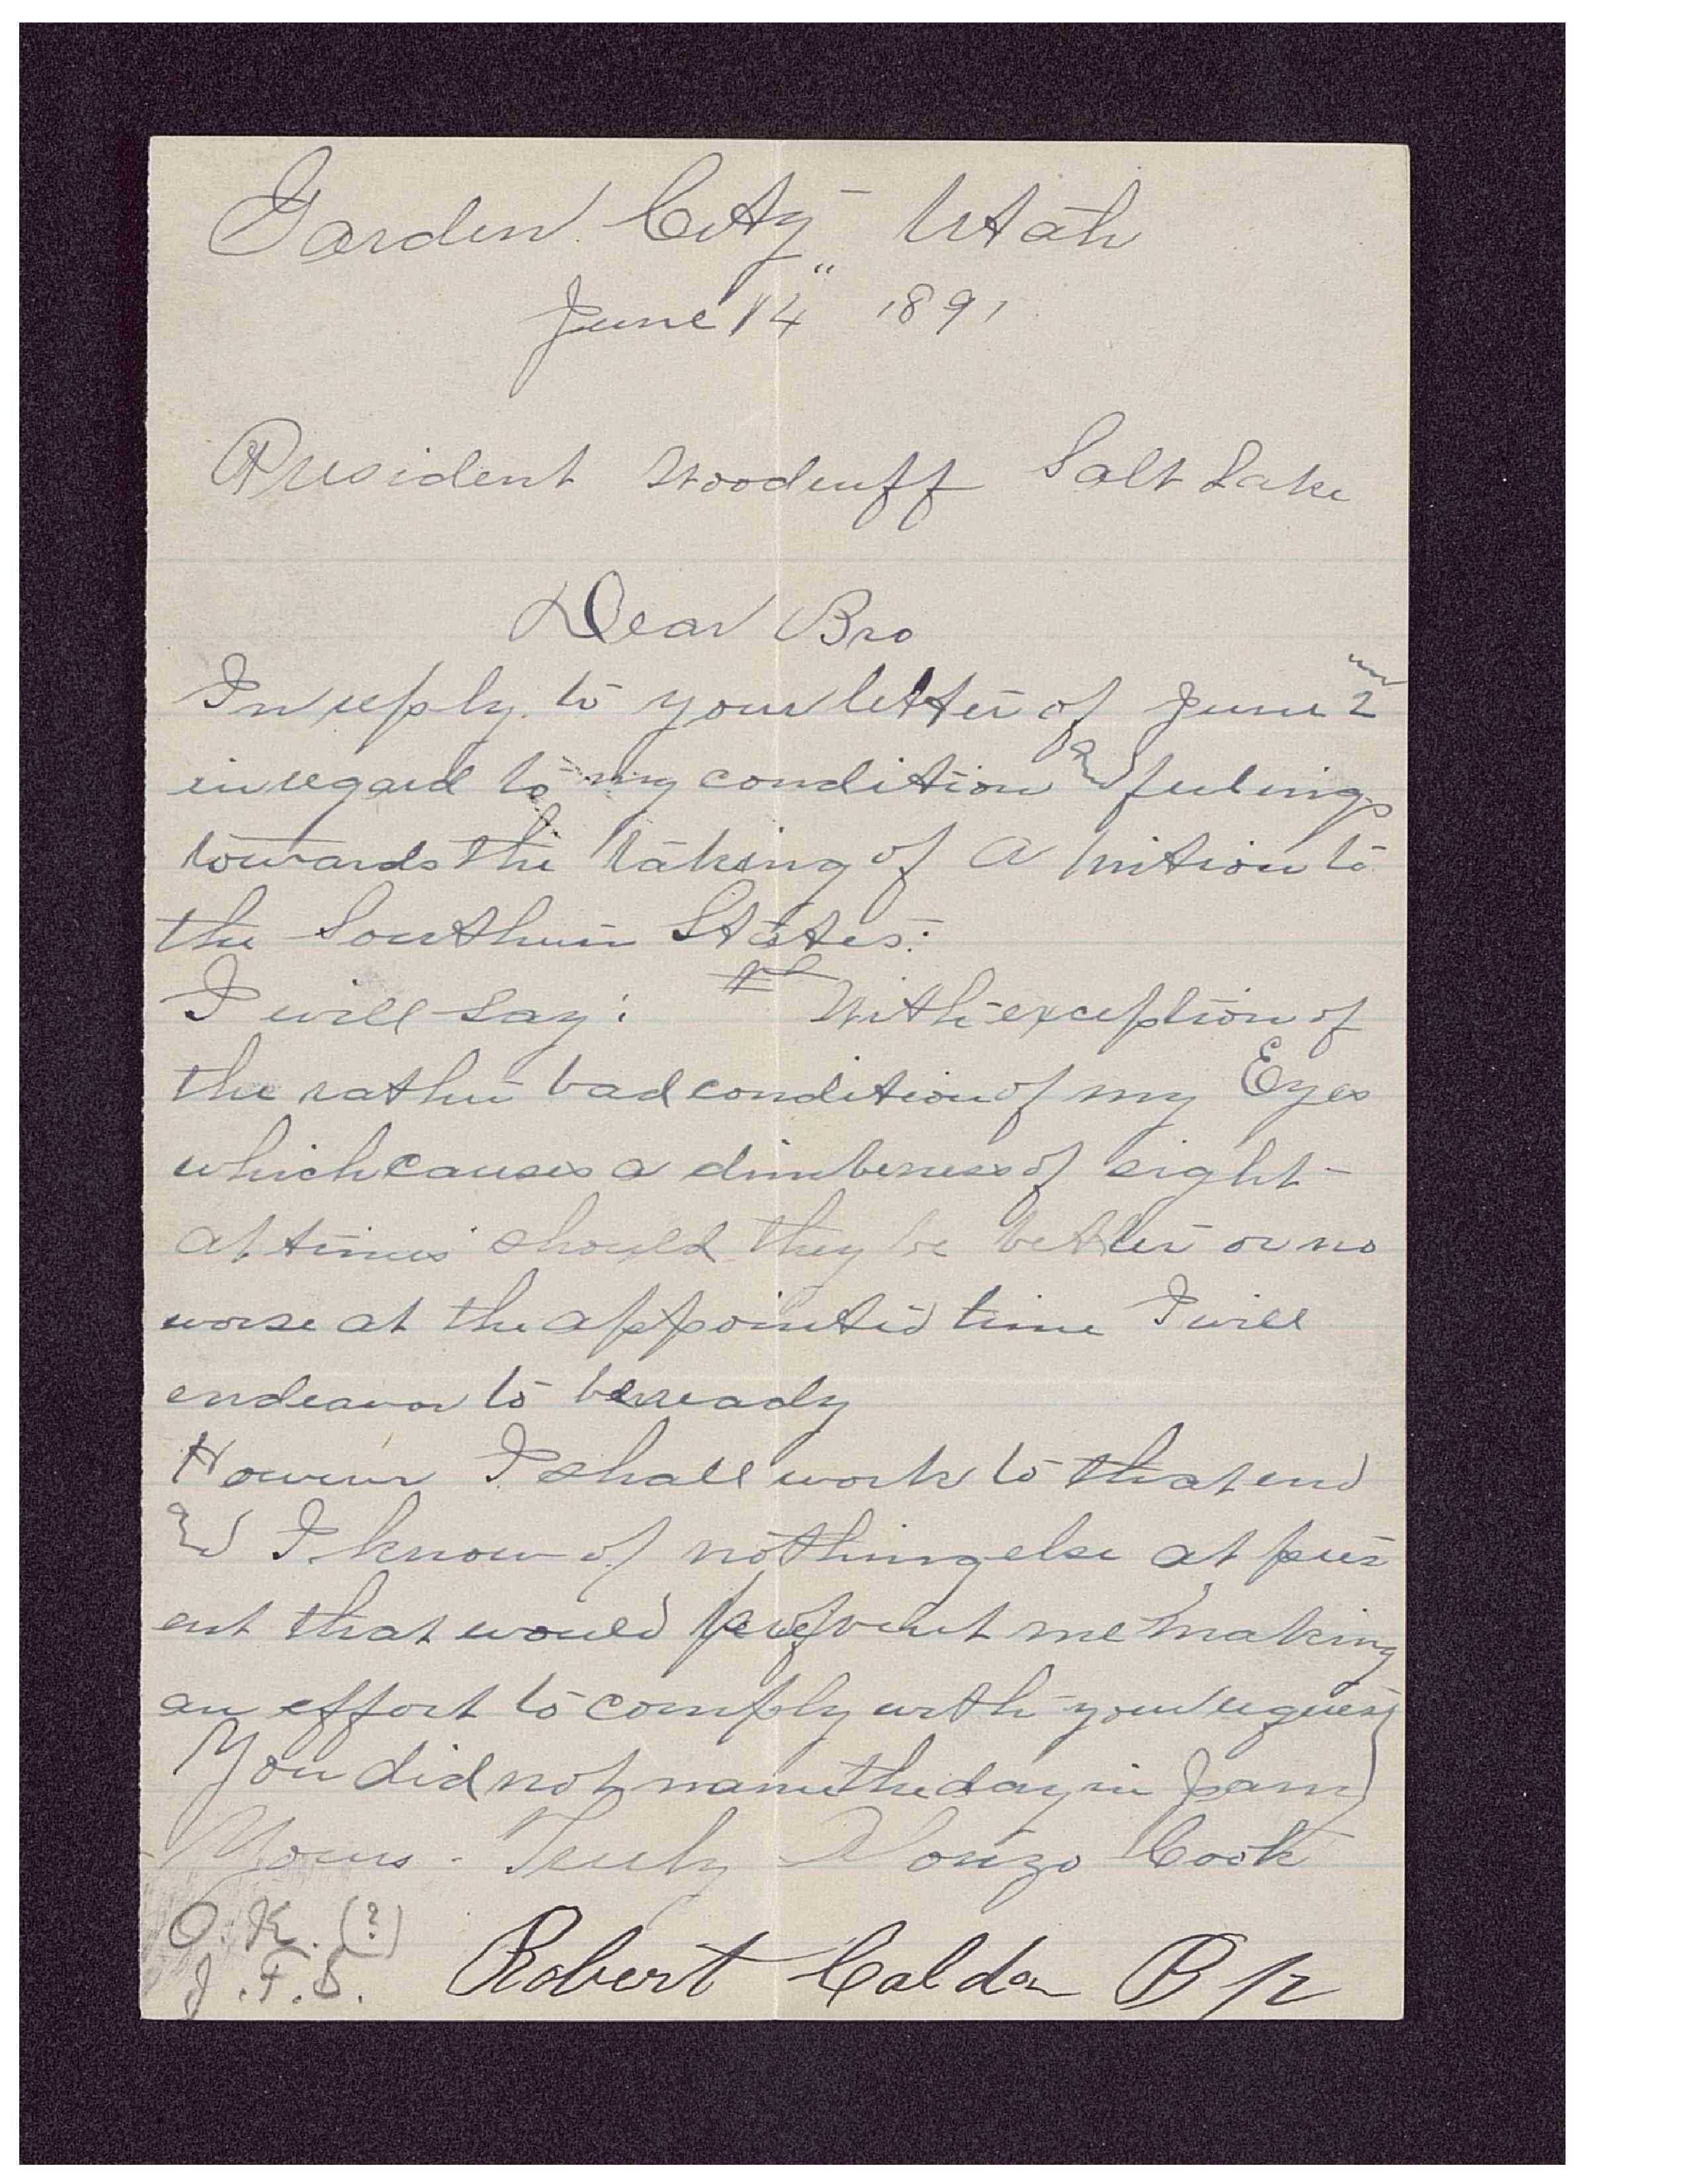 Garden City - Utah
June 14" 1891
President Woodruff Salt Lake
Dear Bro
In reply to your letter of June 2
in regard to my condition & feelings
towards the taking of a mition to
the Southern States.
I will say: With exception of
the rather bad condition of my Eyes
which causes a dimbeness of sight -
at times should they be better or no
worse at the appointed time I will
endeavor to be ready
However I shall work to that end
& I know of nothing else at pres
ent that would prevent me making
an effort to comply with your request
You did not name the day in Jan
Yours - Truly Alonzo Cook
O.K. (?)
J.F.S. Robert Calder Bp